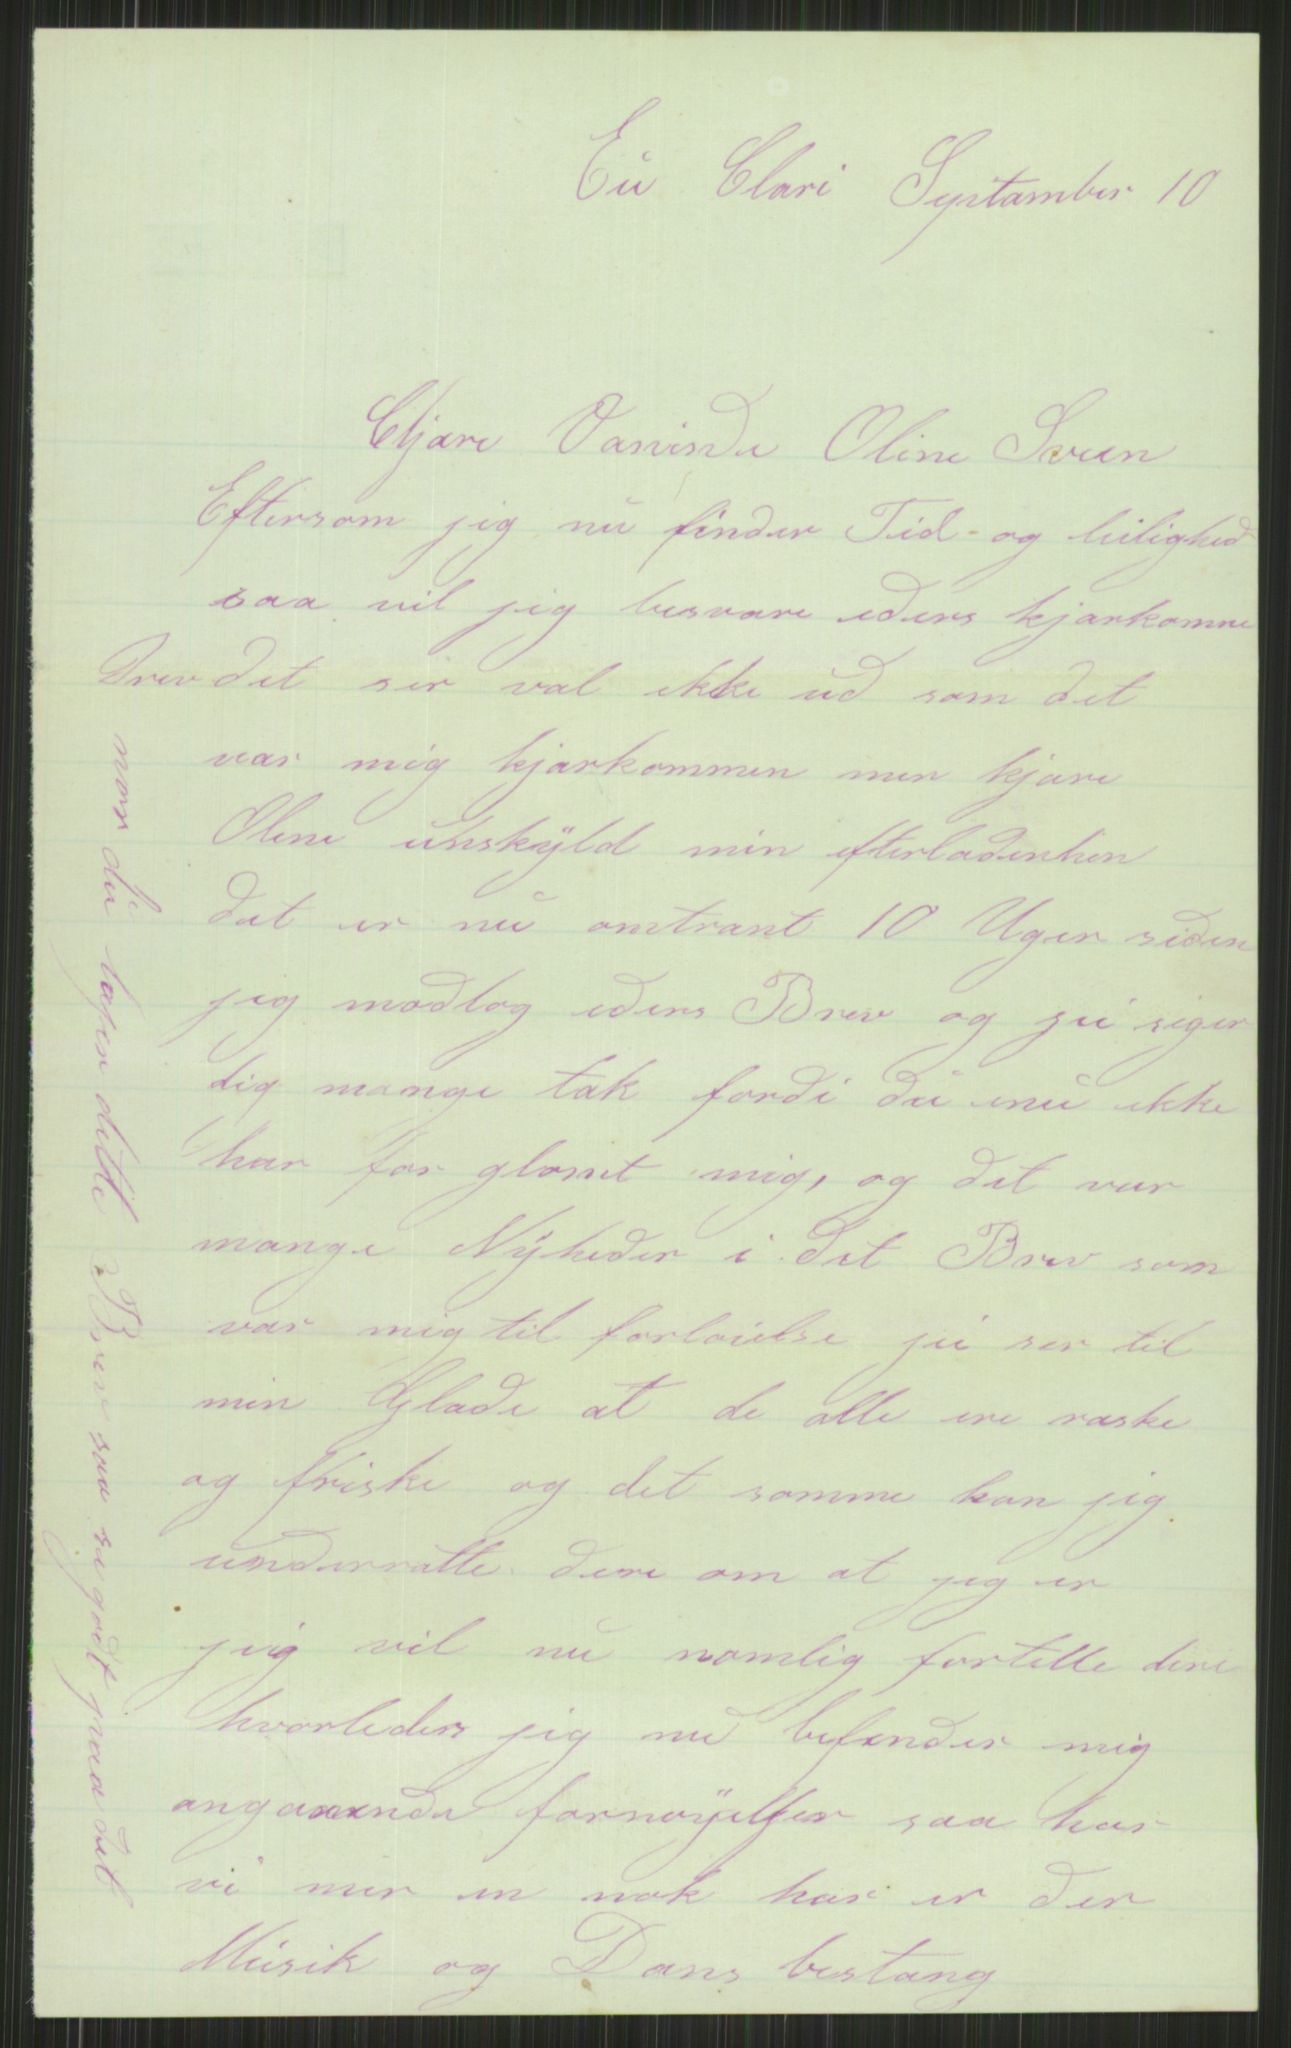 Eu Clari Septamber 10
Chjære Vaninde Oline Sveen
Eftersom jeg nu finder Tid og leilighed
saa vil jeg besvare eders kjærkomne
Brev det ser væl ikke ud som det
var mig kjærkommen men kjære
Oline unskyld min efterladenhen
det er nu omtrænt 10 Uger siden
jeg modtog eders Brev og jei siger
dig mange tak fordi du enu ikke
har for glomt mig, og det var
mange Nyheder i det Brev som
var mig til forloielse jei ser til
min Glæde at de alle ere raske
og friske og det samme kan jeg
underrætte dere om at jeg er
jeg vil nu næmlig fortelle dere
hvorledes jeg nu befinder mig
angaaende fornoyelser saa har
vi mer en nok hær er der
Musik og Dans bestang
naar du læser dette Brev saa se godt paa det